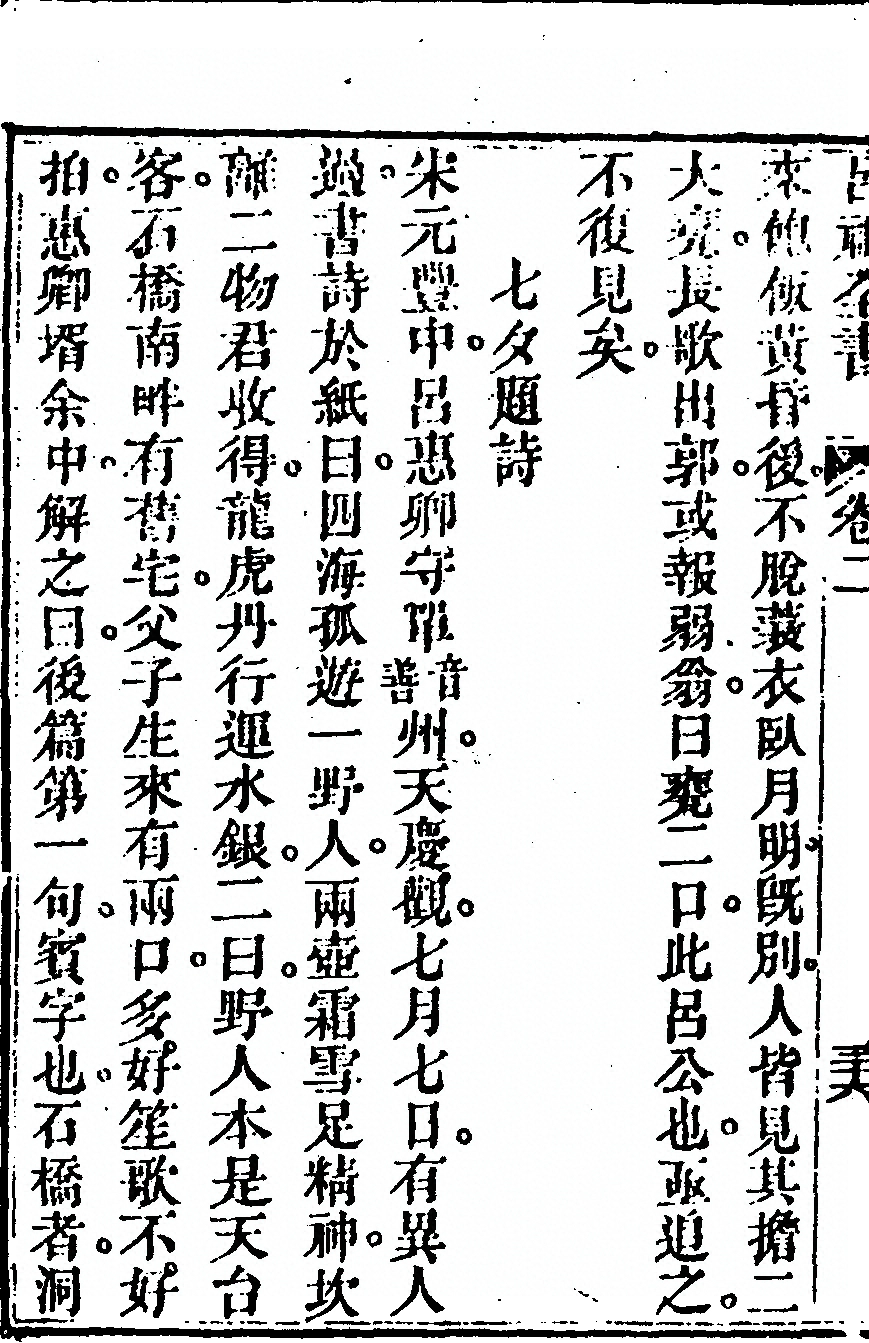 呂祖全書 卷二 三六
來飽飯黃昏後不脫蓑衣臥月明旣別人皆見其擔二
大甕長歌出郭或報弱翁曰甕二口此呂公也亟追之
不復見矣
七夕題詩
宋元豐中呂惠卿守單音善州天慶觀七月七日有異人
過書詩於紙曰四海孤遊一野人兩壺霜雪足精神坎
離二物君收得龍虎丹行運水銀二曰野人本是天台
客石橋南畔有舊宅父子生來有兩口多好笙歌不好
拍惠卿壻余中解之曰後篇第一句賓字也石橋者洞